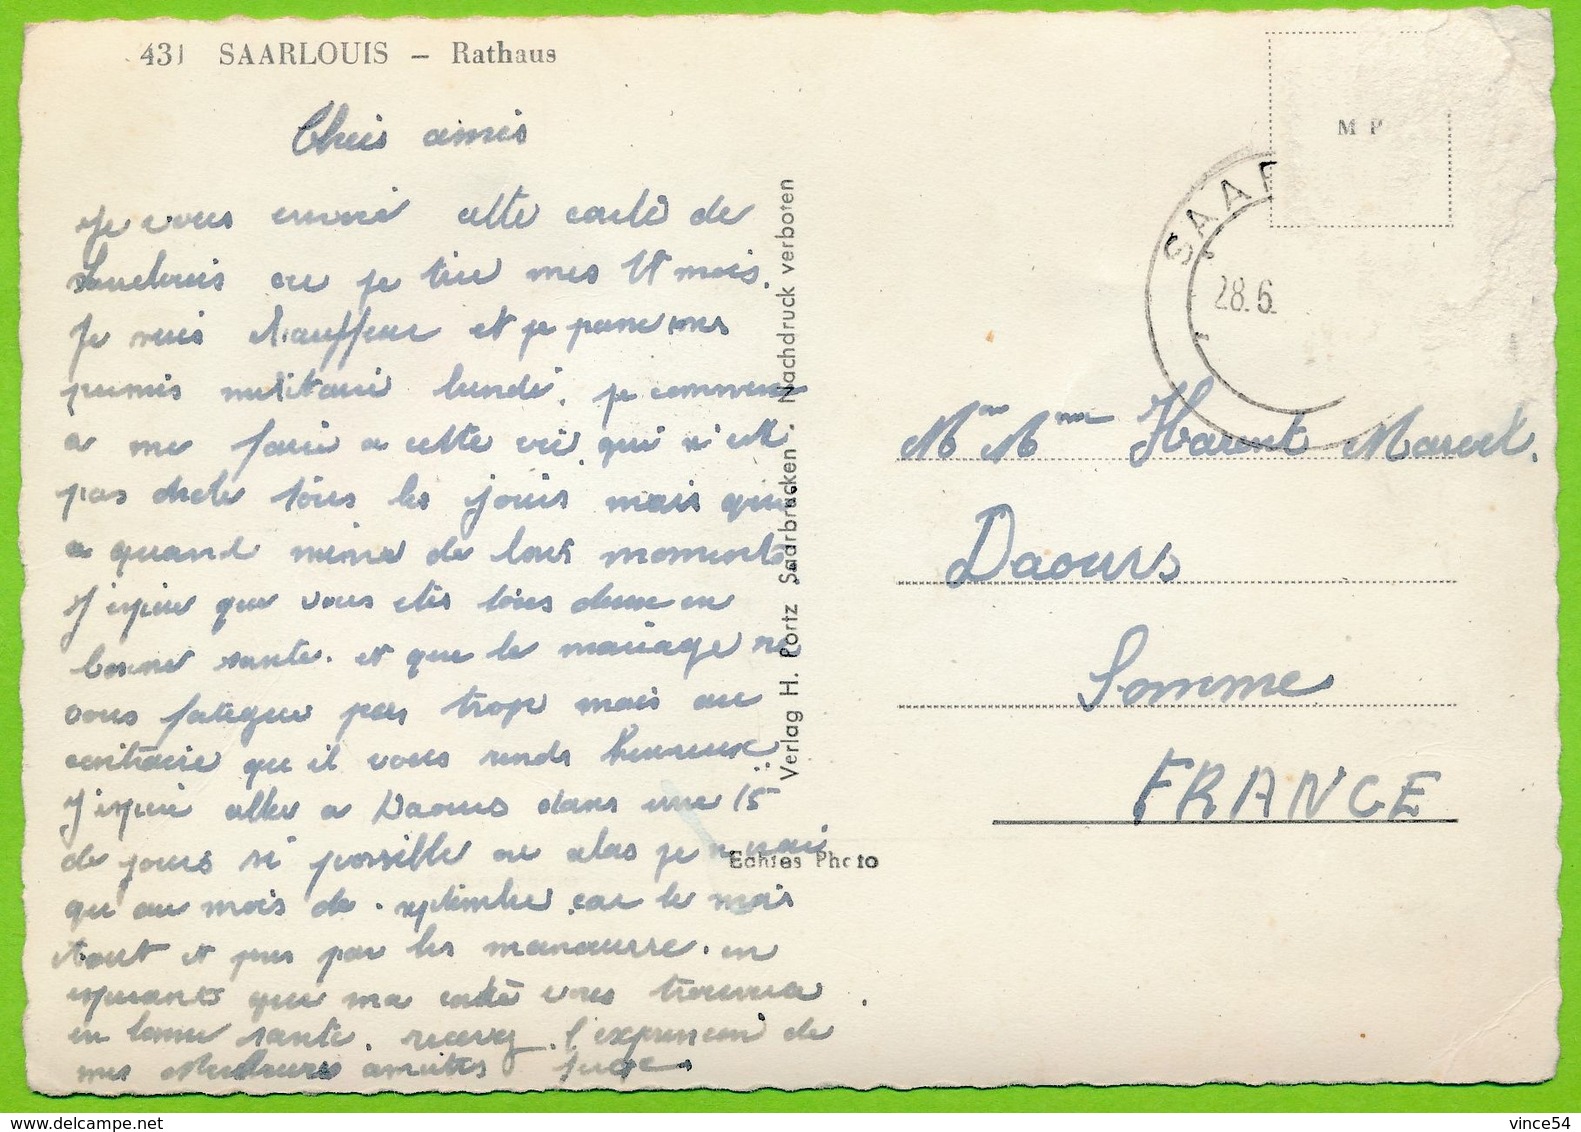 431 SAARLOUIS – Rathaus
Chers amis
Je vous envoie cette carte de
Sarrelouis ou je tire mes 18 mois.
Je suis chauffeur et je passe mes
permis militaire lundi. je commence
a me faire a cette vie qui n'est
pas drole tous les jours mais qui
a quand meme de bons moments
J'espere que vous etes tous deux en
bonne sante. et que le mariage ne
vous fatigue pas trop mais au
contraire qu il vous rends heureux
J'espere aller a Daours dans une 15
de jours si possible ou alas je n irai
qu au mois de septembre car le mois
d'aout et pris par les manœuvre. en
esperant que ma carte vous trouvera
en bonne sante. recevez l'expression de
mes meilleures amities
Verlag H. Portz Saarbrücken. Nachdruck verboten
Echtes Photo
M P
SAAR
28.6.
Mr Mme Harent Marcel.
Daours
Somme
FRANCE
www.delcampe.net
vince54